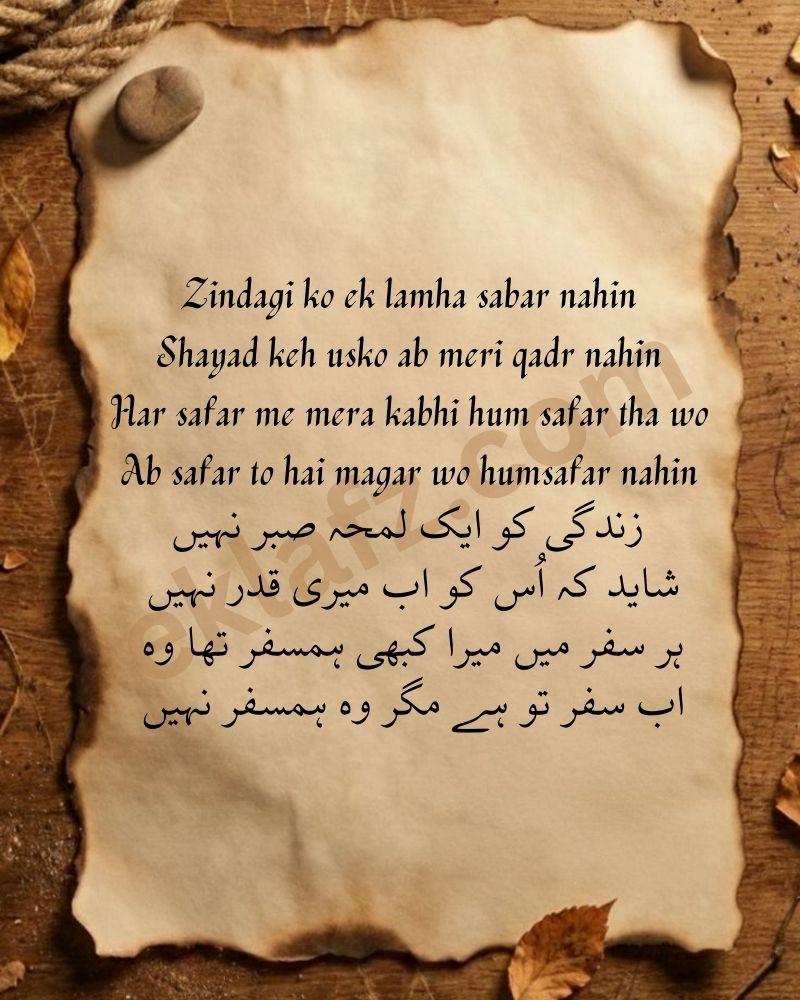 Zindagi ko ek lamha sabar nahin
Shayad keh usko ab meri qadr nahin
Har safar me mera kabhi hum safar tha wo
Ab safar to hai magar wo humsafar nahin
زندگی کو ایک لمحہ صبر نہیں
شاید کہ اُس کو اب میری قدر نہیں
ہر سفر میں میرا کبھی ہمسفر تھا وہ
اب سفر تو ہے مگر وہ ہمسفر نہیں
eklafz.com